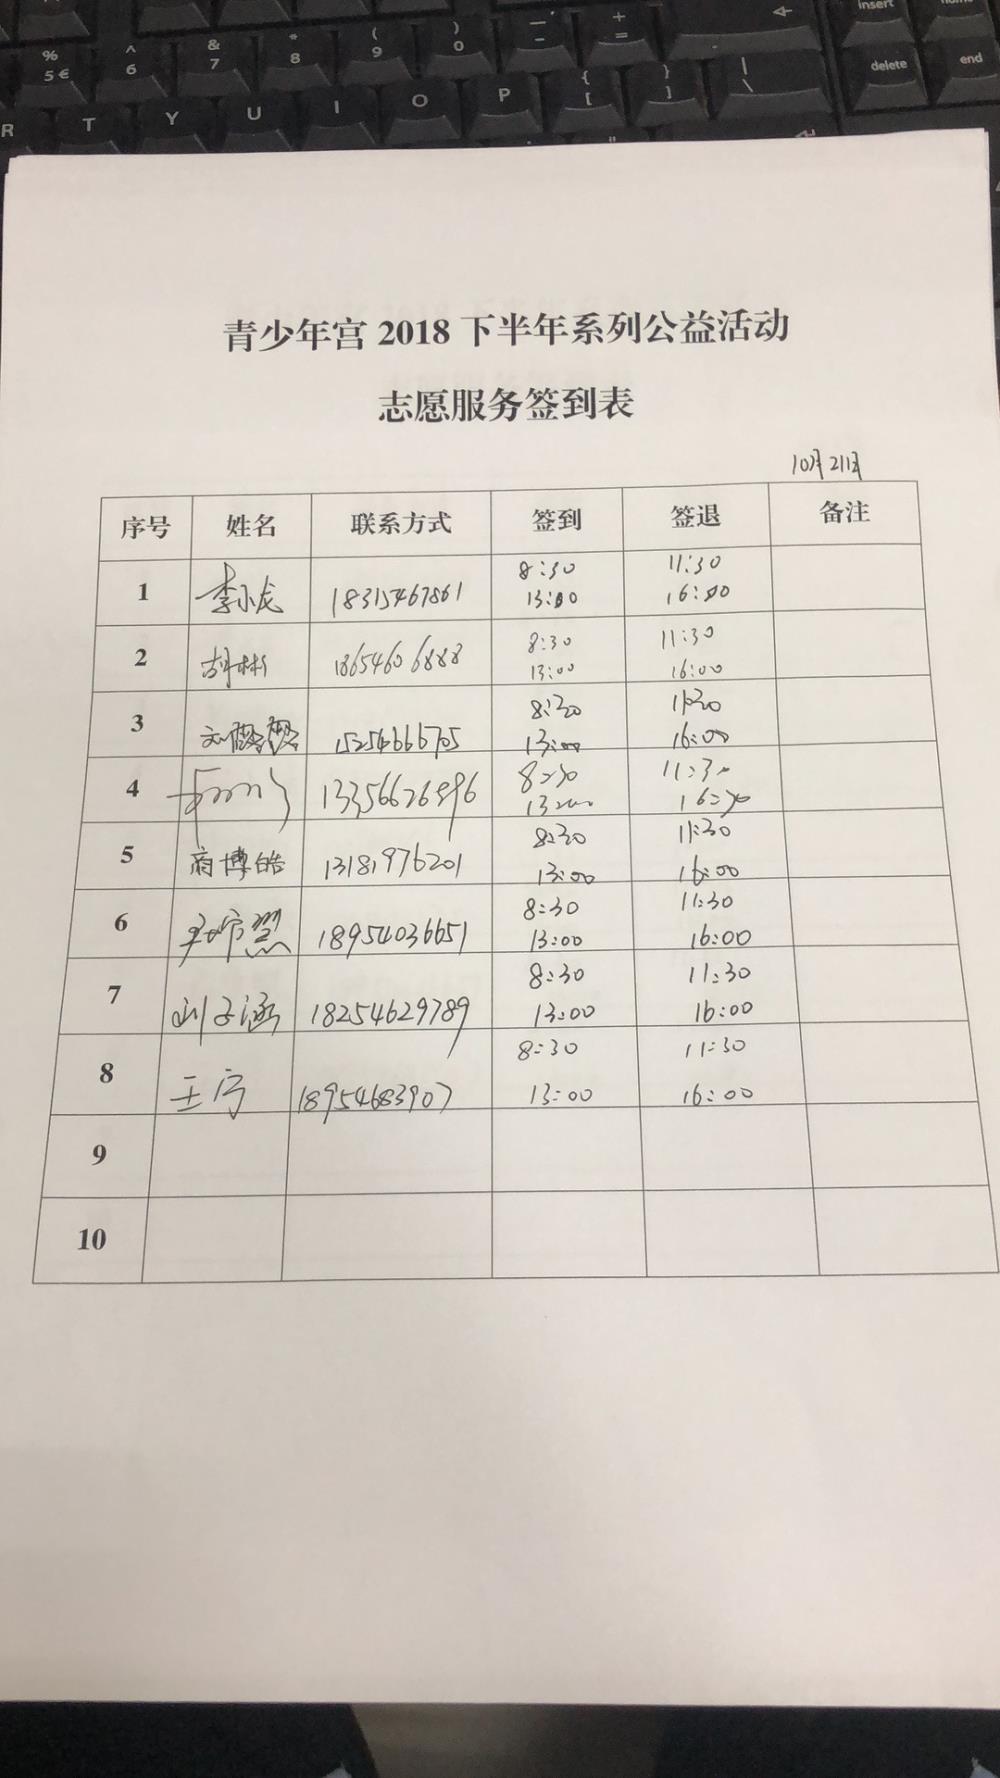 % 5 €
^ 6
& 7
* 8
( 9
) 0
— -
+ =
insert
home
R T Y U I O P { [ } ] | \ delete end
青少年宫 2018 下半年系列公益活动
志愿服务签到表
10月21日
序号 姓名 联系方式 签到 签退 备注
8:30 11:30
1 李小龙 18315467861 13:00 16:00
8:30 11:30
2 胡彬 18654606888 13:00 16:00
8:30 11:30
3 刘 15254666705 13:00 16:00
8:30 11:30
4 13356626896 13:00 16:30
8:30 11:30
5 商博皓 13181976201 13:00 16:00
8:30 11:30
6 18954036651 13:00 16:00
8:30 11:30
7 刘子涵 18254629789 13:00 16:00
8:30 11:30
8 王宁 18954683907 13:00 16:00
9
10